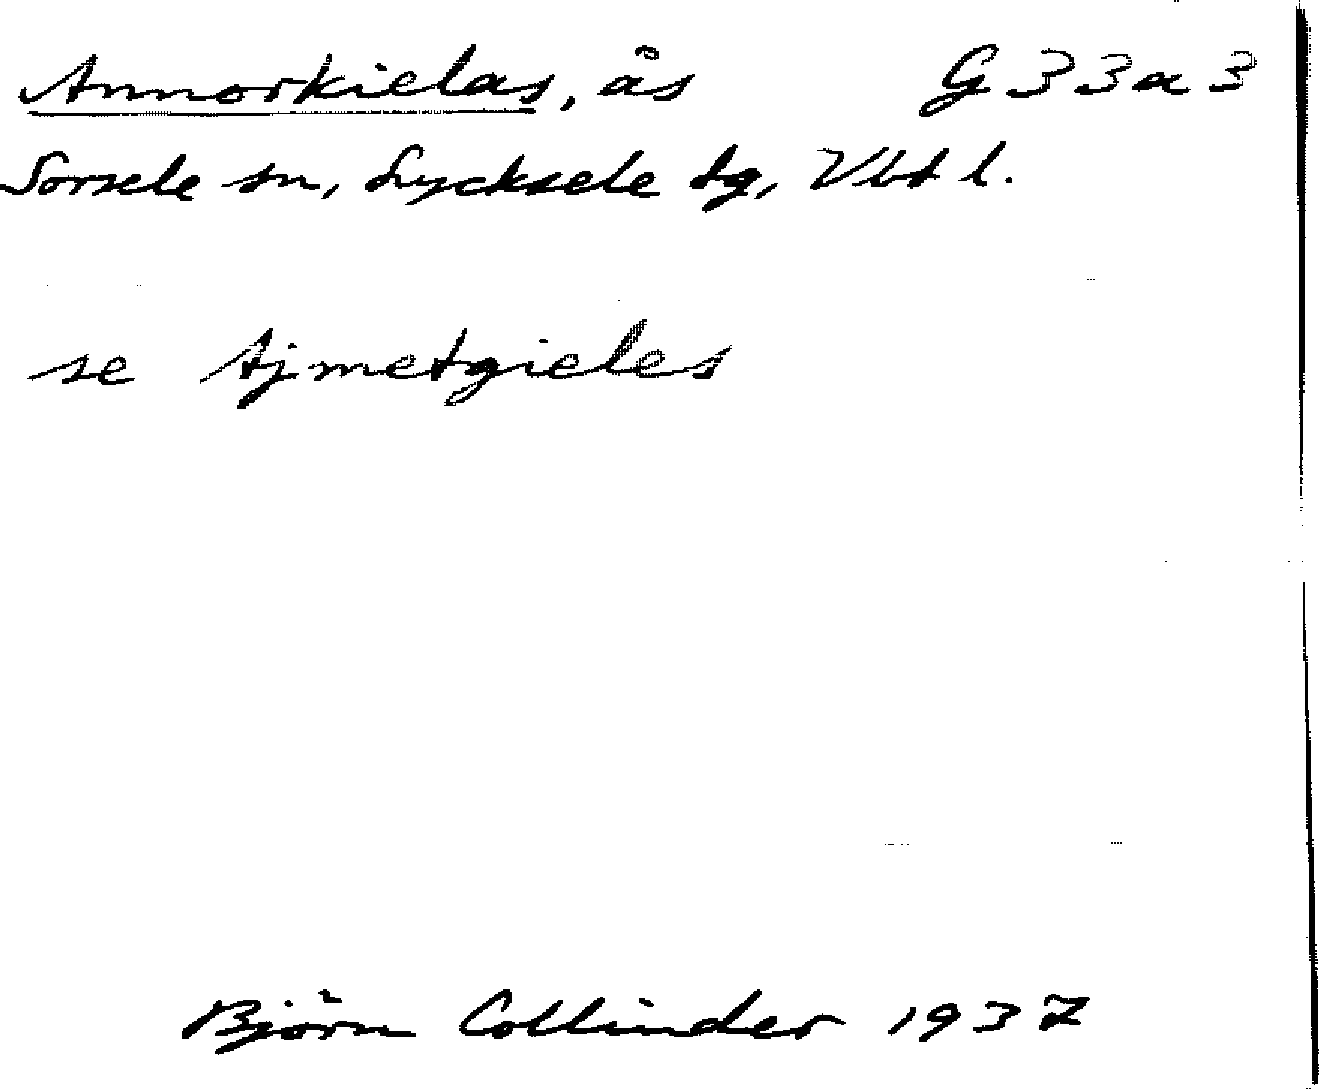 Annorkielas, ås G33a3
Sorsele sn, Lycksele tg, Vbt l.
se Ajmetgieles
Björn Collinder 1937